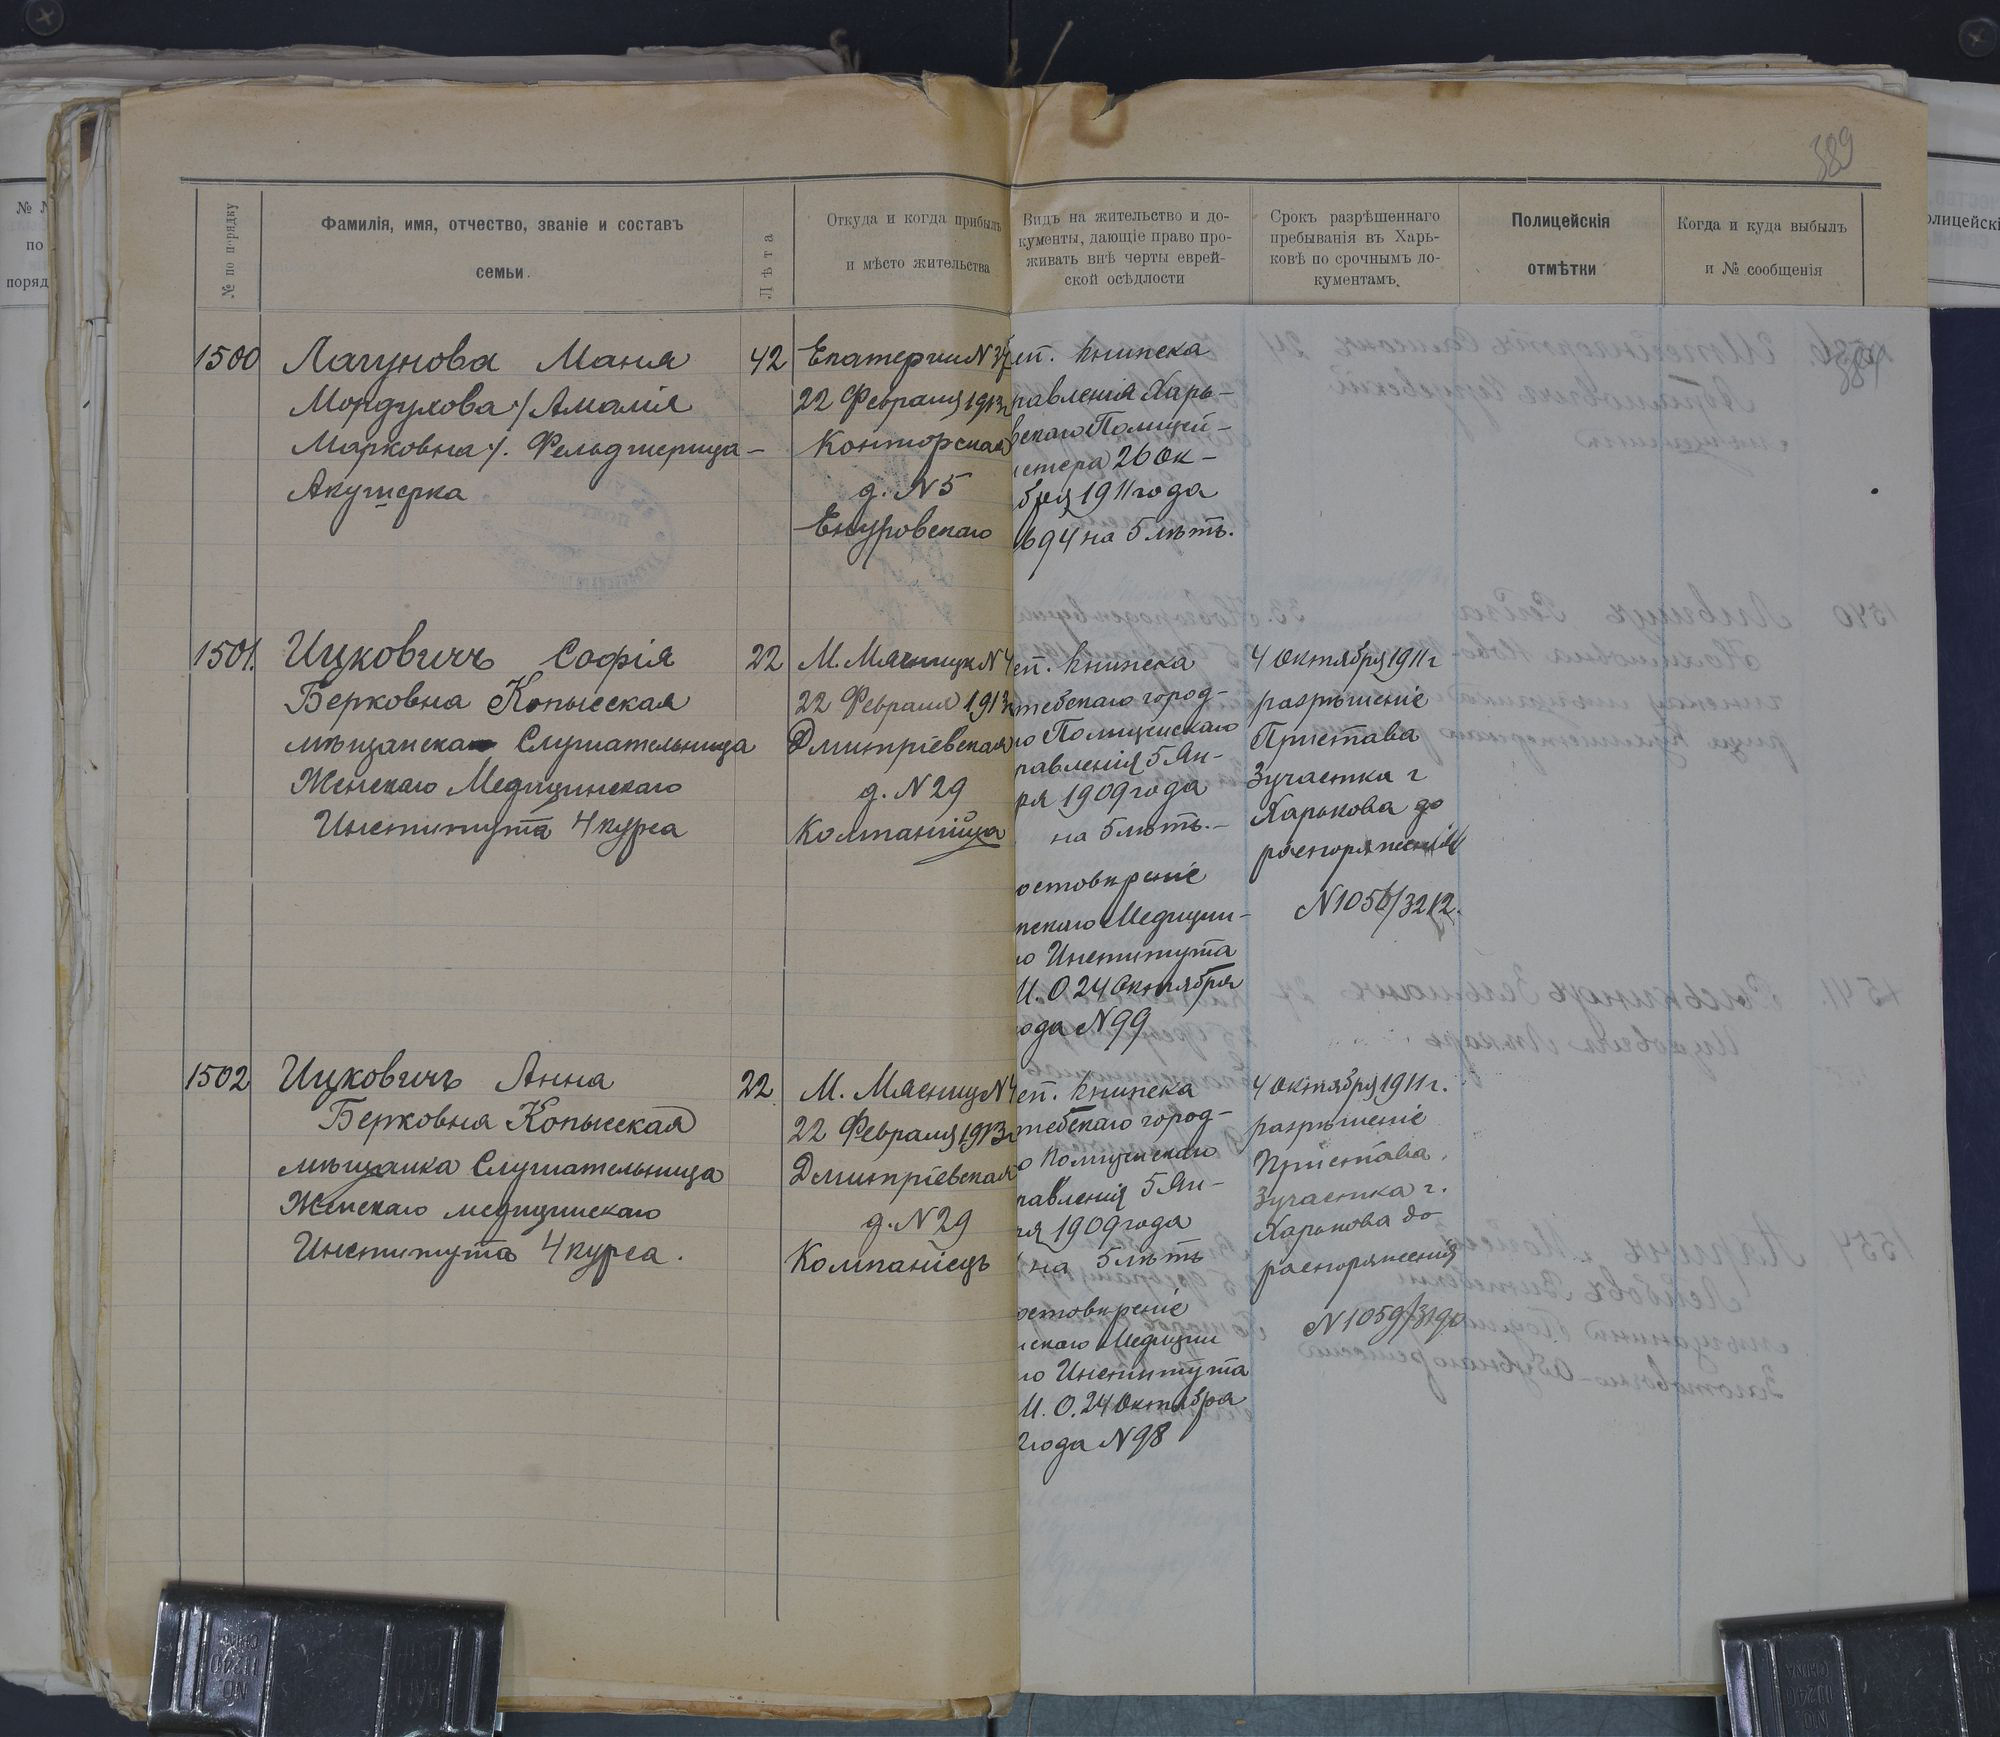 389
№ по порядку
Фамилія, имя, отчество, званіе и составъ
семьи.
Лѣта
Откуда и когда прибылъ
и мѣсто жительства
Видъ на жительство и до-
кументы, дающіе право про-
живать внѣ черты еврей-
ской осѣдлости
Срокъ разрѣшеннаго
пребыванія въ Харь-
ковѣ по срочнымъ до-
кументамъ.
Полицейскія
отмѣтки
Когда и куда выбылъ
и № сообщенія
1500
Лагунова Маня
Мордухова /Амалія
Марковна/. Фельдшерица-
Акушерка
42
Екатерин N
22 Февраля 1913
Конторская
д. N 5
Енуровскаго
еп. книжка
равленія Харь-
вскаго Полицей-
стера 26 Ок-
бря 1911 года
694 на 5 лѣтъ.
1501.
Ицковичъ Софія
Берковна Копысская
мѣщанска Слушательница
Женскаго Медицинскаго
Института 4 курса
22
М. Мясницк N 4
22 Февраля 1913
Дмитріевская
д. N 29
Компанійца
еп. книжка
тебскаго город-
го Полицейскаго
равленія 5 Ян-
ря 1909 года
на 5 лѣтъ.-
остовѣреніе
нскаго Медицин-
го Института
М. О 24 Октября
ода N 99
4 Октября 1911 г
разрѣшеніе
Пристава
3 участка г
Харькова до
распоряженія
N 1056/3212.
1502
Ицковичъ Анна
Берковна Копысская
мѣщанка Слушательница
Женскаго медицинскаго
Института 4 курса.
22
М. Мясниц N 4
22 Февраля 1913
Дмитріевская
д. N 29
Компаніецъ
еп. книжка
тебскаго город-
о Полицейскаго
равленія 5 Ян-
ря 1909 года
на 5 лѣтъ
остовѣреніе
нскаго Медицин
го Института
М. О. 24 Октября
2 года N 98
4 Октября 1911 г.
разрѣшеніе
Пристава
3 участка г.
Харькова до
распоряженія
N 1059/3190